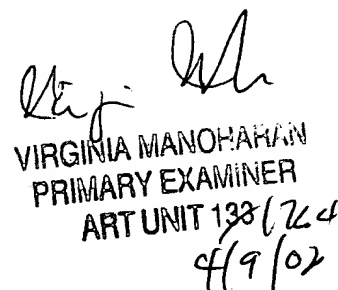 VIRGINIA MANOHARAN
PRIMARY EXAMINER
ART UNIT 133/764
4/9/02